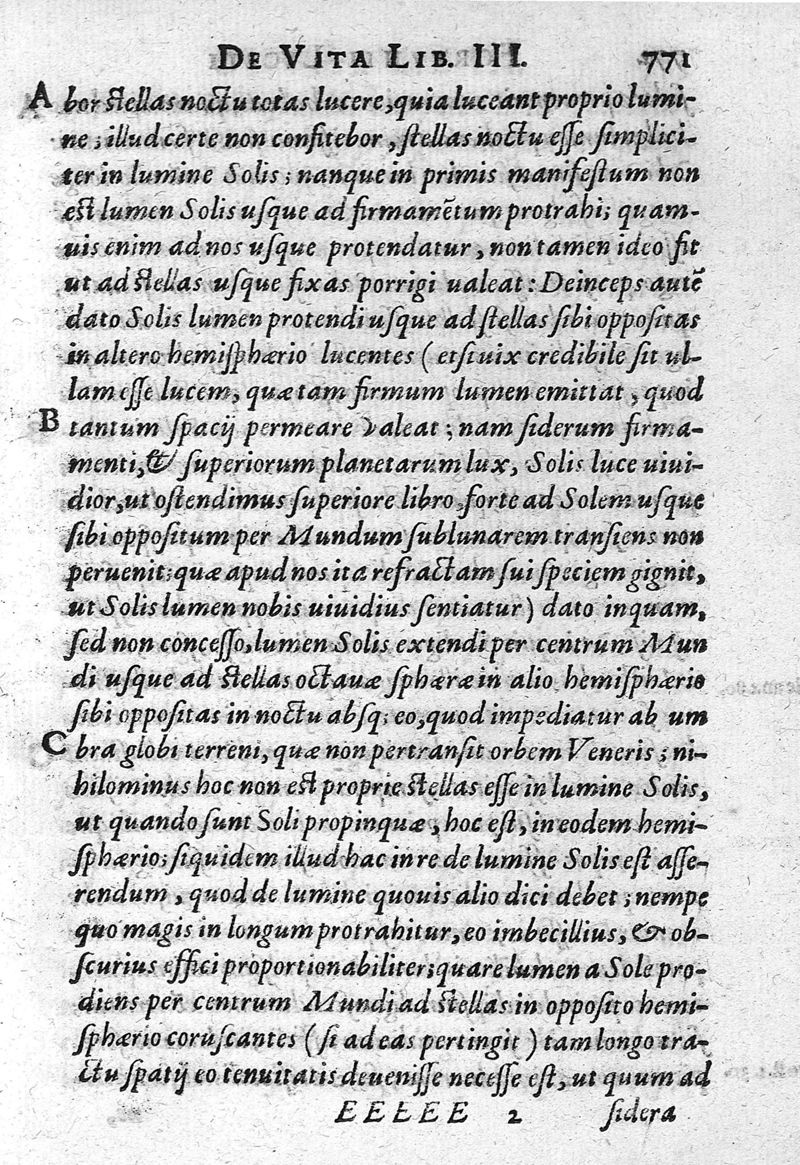 DE VITA LIB. III. 771
A bor ſtellas noctu totas lucere, quia luceant proprio lumi-
ne; illud certe non confitebor, ſtellas noctu eſſe ſimplici-
ter in lumine Solis; nanque in primis manifeſtum non
eſt lumen Solis uſque ad firmamẽtum protrahi; quam-
uis enim ad nos uſque protendatur, non tamen ideo fit
ut ad ſtellas uſque fixas porrigi ualeat: Deinceps autẽ
dato Solis lumen protendi uſque ad ſtellas ſibi oppoſitas
in altero hemiſphærio lucentes (etſi uix credibile ſit ul-
lam eſſe lucem, quæ tam firmum lumen emittat, quod
B tantum ſpacij permeare valeat; nam ſiderum firma-
menti, & ſuperiorum planetarum lux, Solis luce uiui-
dior, ut oſtendimus ſuperiore libro, forte ad Solem uſque
ſibi oppoſitum per Mundum ſublunarem tranſiens non
peruenit; quæ apud nos ita refractam ſui ſpeciem gignit,
ut Solis lumen nobis uiuidius ſentiatur) dato inquam,
ſed non conceſſo, lumen Solis extendi per centrum Mun
di uſque ad ſtellas octauæ ſphæræ in alio hemiſphærio
ſibi oppoſitas in noctu abſq; eo, quod impediatur ab um
C bra globi terreni, quæ non pertranſit orbem Veneris; ni-
hilominus hoc non eſt proprie ſtellas eſſe in lumine Solis,
ut quando ſunt Soli propinquæ, hoc eſt, in eodem hemi-
ſphærio; ſiquidem illud hac in re de lumine Solis eſt aſſe-
rendum, quod de lumine quouis alio dici debet; nempe
quo magis in longum protrahitur, eo imbecillius, & ob-
ſcurius effici proportionabiliter; quare lumen a Sole pro-
diens per centrum Mundi ad ſtellas in oppoſito hemi-
ſphærio coruſcantes (ſi ad eas pertingit) tam longo tra-
ctu ſpatij eo tenuitatis deueniſſe neceſſe eſt, ut quum ad
EEEEE 2 ſidera